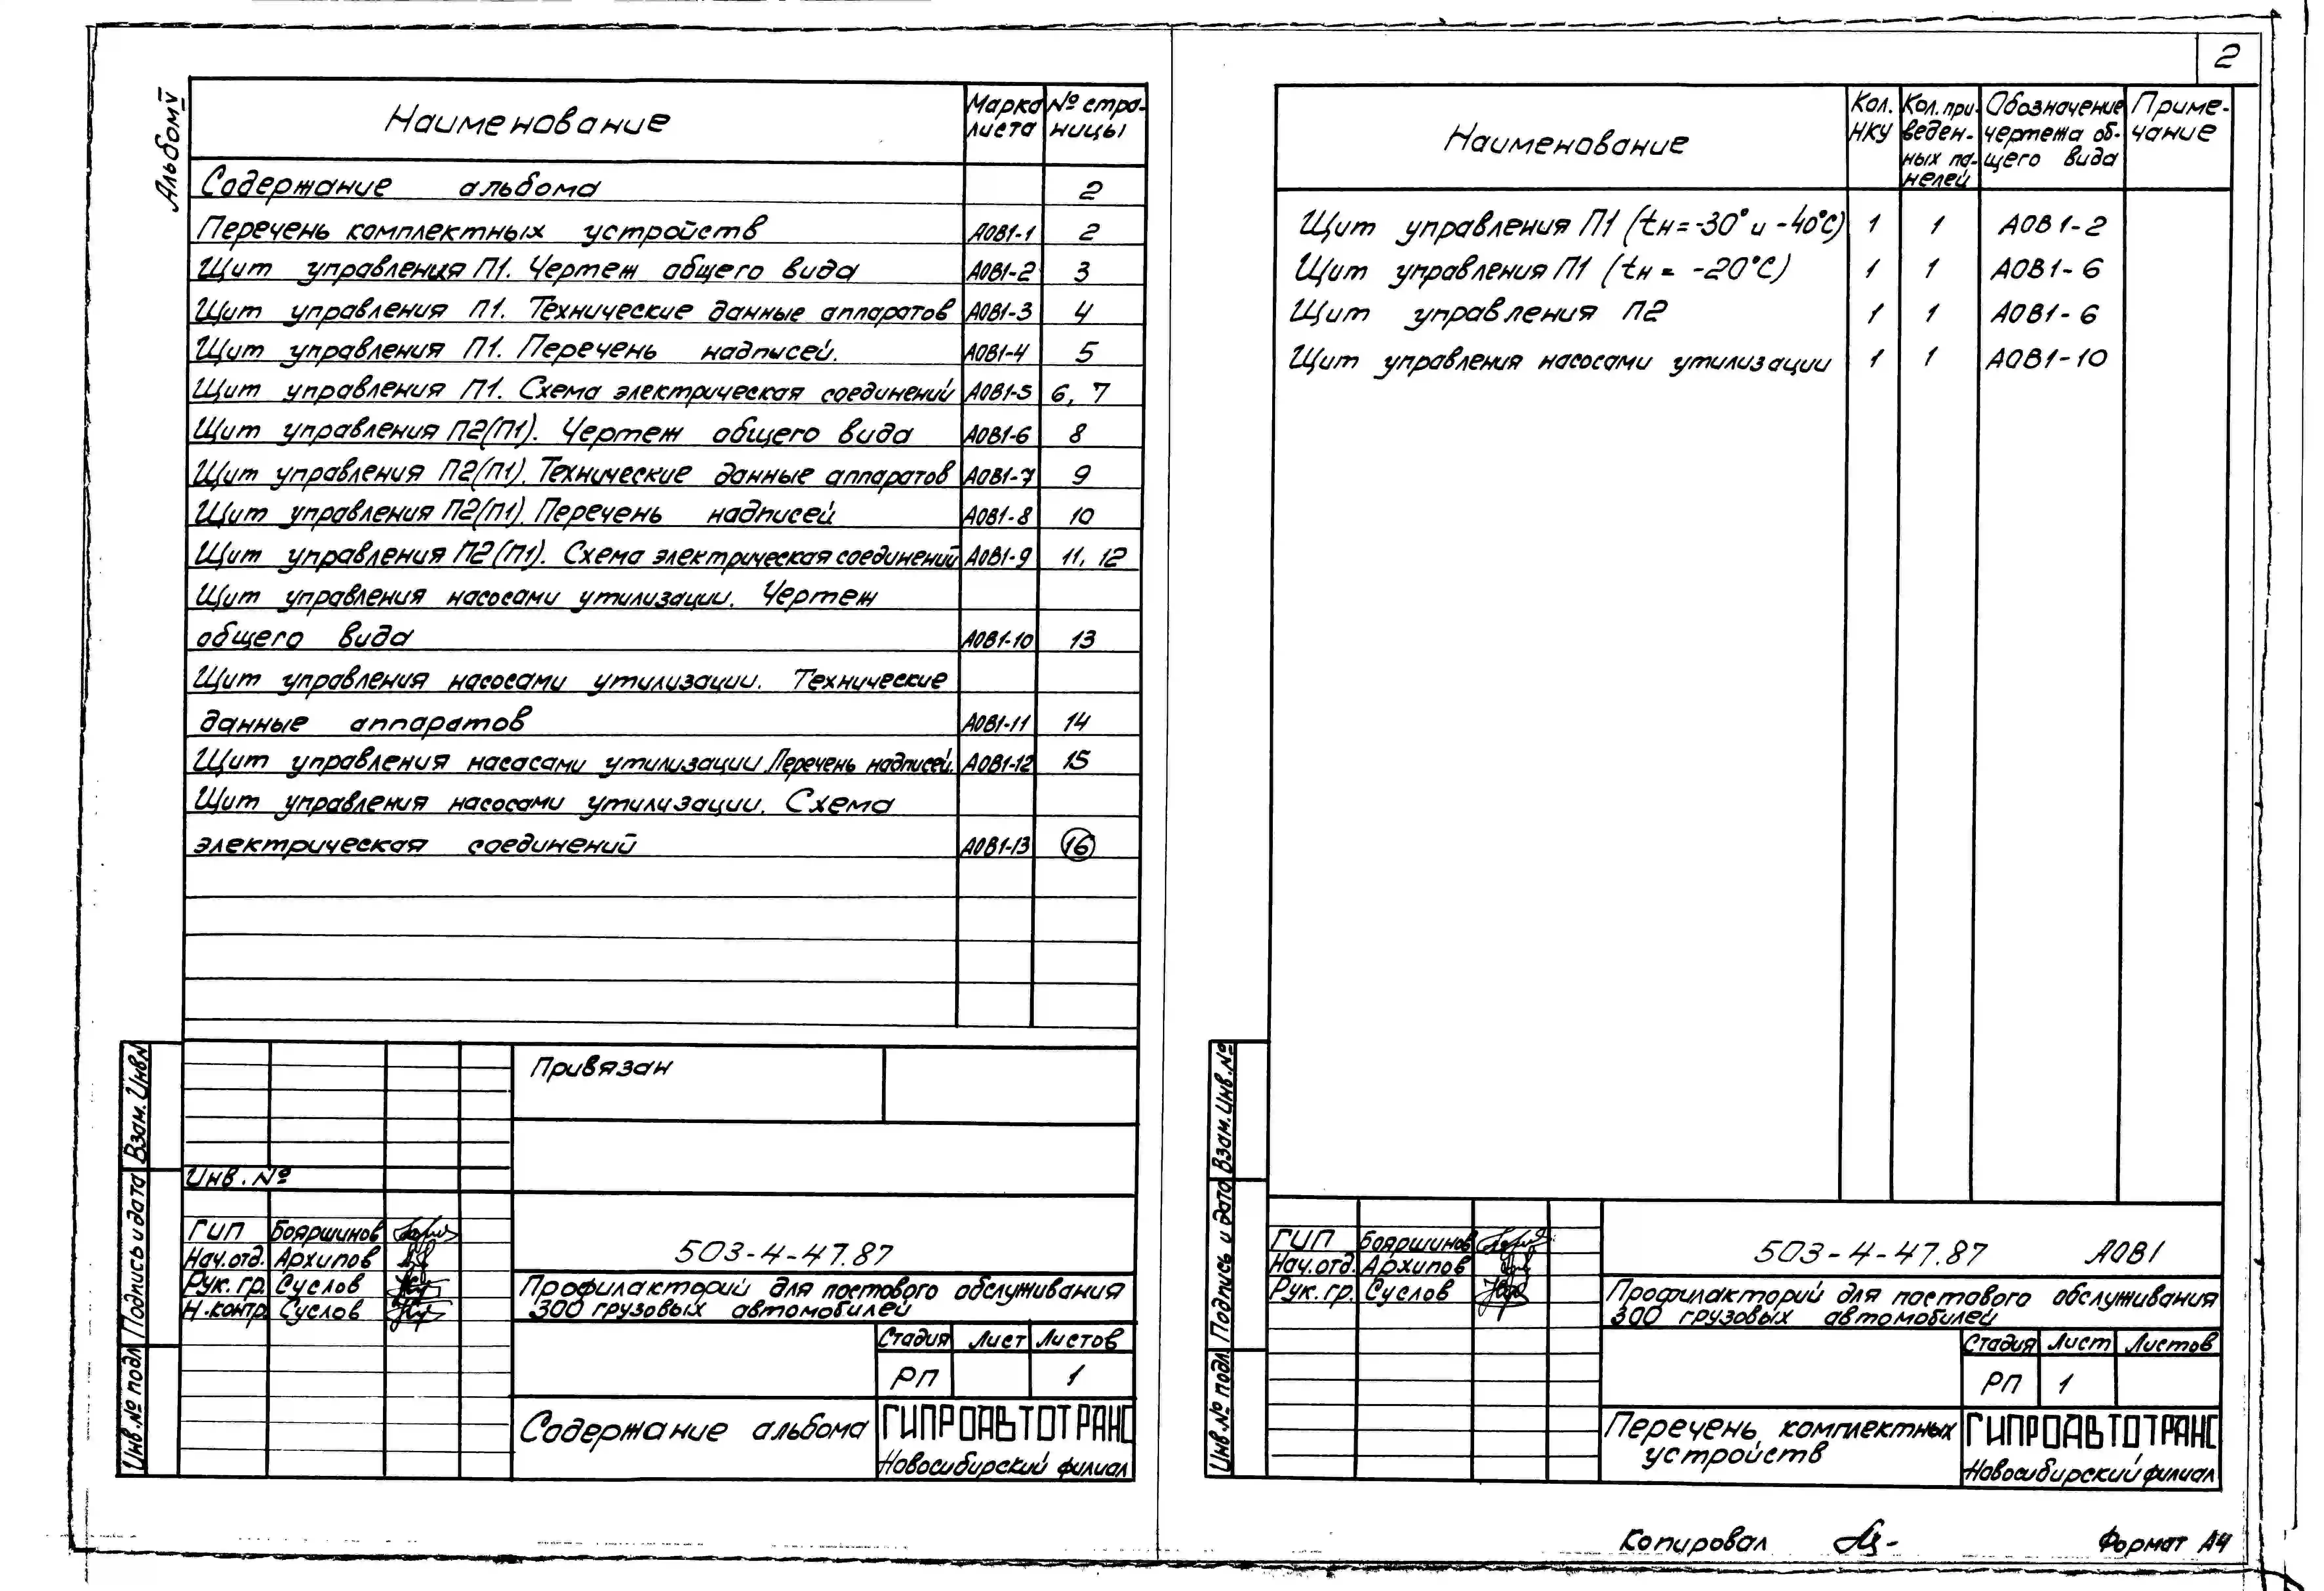 2
Альбом V
Наименование
Марка листа
№ страницы
Содержание альбома 2
Перечень комплектных устройств АОВ1-1 2
Щит управления П1. Чертеж общего вида АОВ1-2 3
Щит управления П1. Технические данные аппаратов АОВ1-3 4
Щит управления П1. Перечень надписей. АОВ1-4 5
Щит управления П1. Схема электрическая соединений АОВ1-5 6, 7
Щит управления П2(П1). Чертеж общего вида АОВ1-6 8
Щит управления П2(П1). Технические данные аппаратов АОВ1-7 9
Щит управления П2(П1). Перечень надписей АОВ1-8 10
Щит управления П2(П1). Схема электрическая соединений АОВ1-9 11, 12
Щит управления насосами утилизации. Чертеж
общего вида АОВ1-10 13
Щит управления насосами утилизации. Технические
данные аппаратов АОВ1-11 14
Щит управления насосами утилизации. Перечень надписей. АОВ1-12 15
Щит управления насосами утилизации. Схема
электрическая соединений АОВ1-13 16
Привязан
Инв. №
ГИП Бояршинов
Нач.отд. Архипов
Рук. гр. Суслов
Н.контр. Суслов
503-4-47.87
Профилакторий для постового обслуживания
300 грузовых автомобилей
Стадия Лист Листов
РП 1
Содержание альбома
ГИПРОАВТОТРАНС
Новосибирский филиал
Взам. Инв.№
Подпись и дата
Инв.№ подл
Наименование
Кол. НКУ
Кол. при-
веден-
ных па-
нелей
Обозначение
чертежа об-
щего вида
Приме-
чание
Щит управления П1 (tн=-30° и -40°С) 1 1 АОВ1-2
Щит управления П1 (tн = -20°С) 1 1 АОВ1-6
Щит управления П2 1 1 АОВ1-6
Щит управления насосами утилизации 1 1 АОВ1-10
Взам. Инв.№
Подпись и дата
Инв.№ подл.
ГИП Бояршинов
Нач.отд. Архипов
Рук. гр. Суслов
503-4-47.87 АОВ1
Профилакторий для постового обслуживания
300 грузовых автомобилей
Стадия Лист Листов
РП 1
Перечень комплектных
устройств
ГИПРОАВТОТРАНС
Новосибирский филиал
Копировал
Формат А4